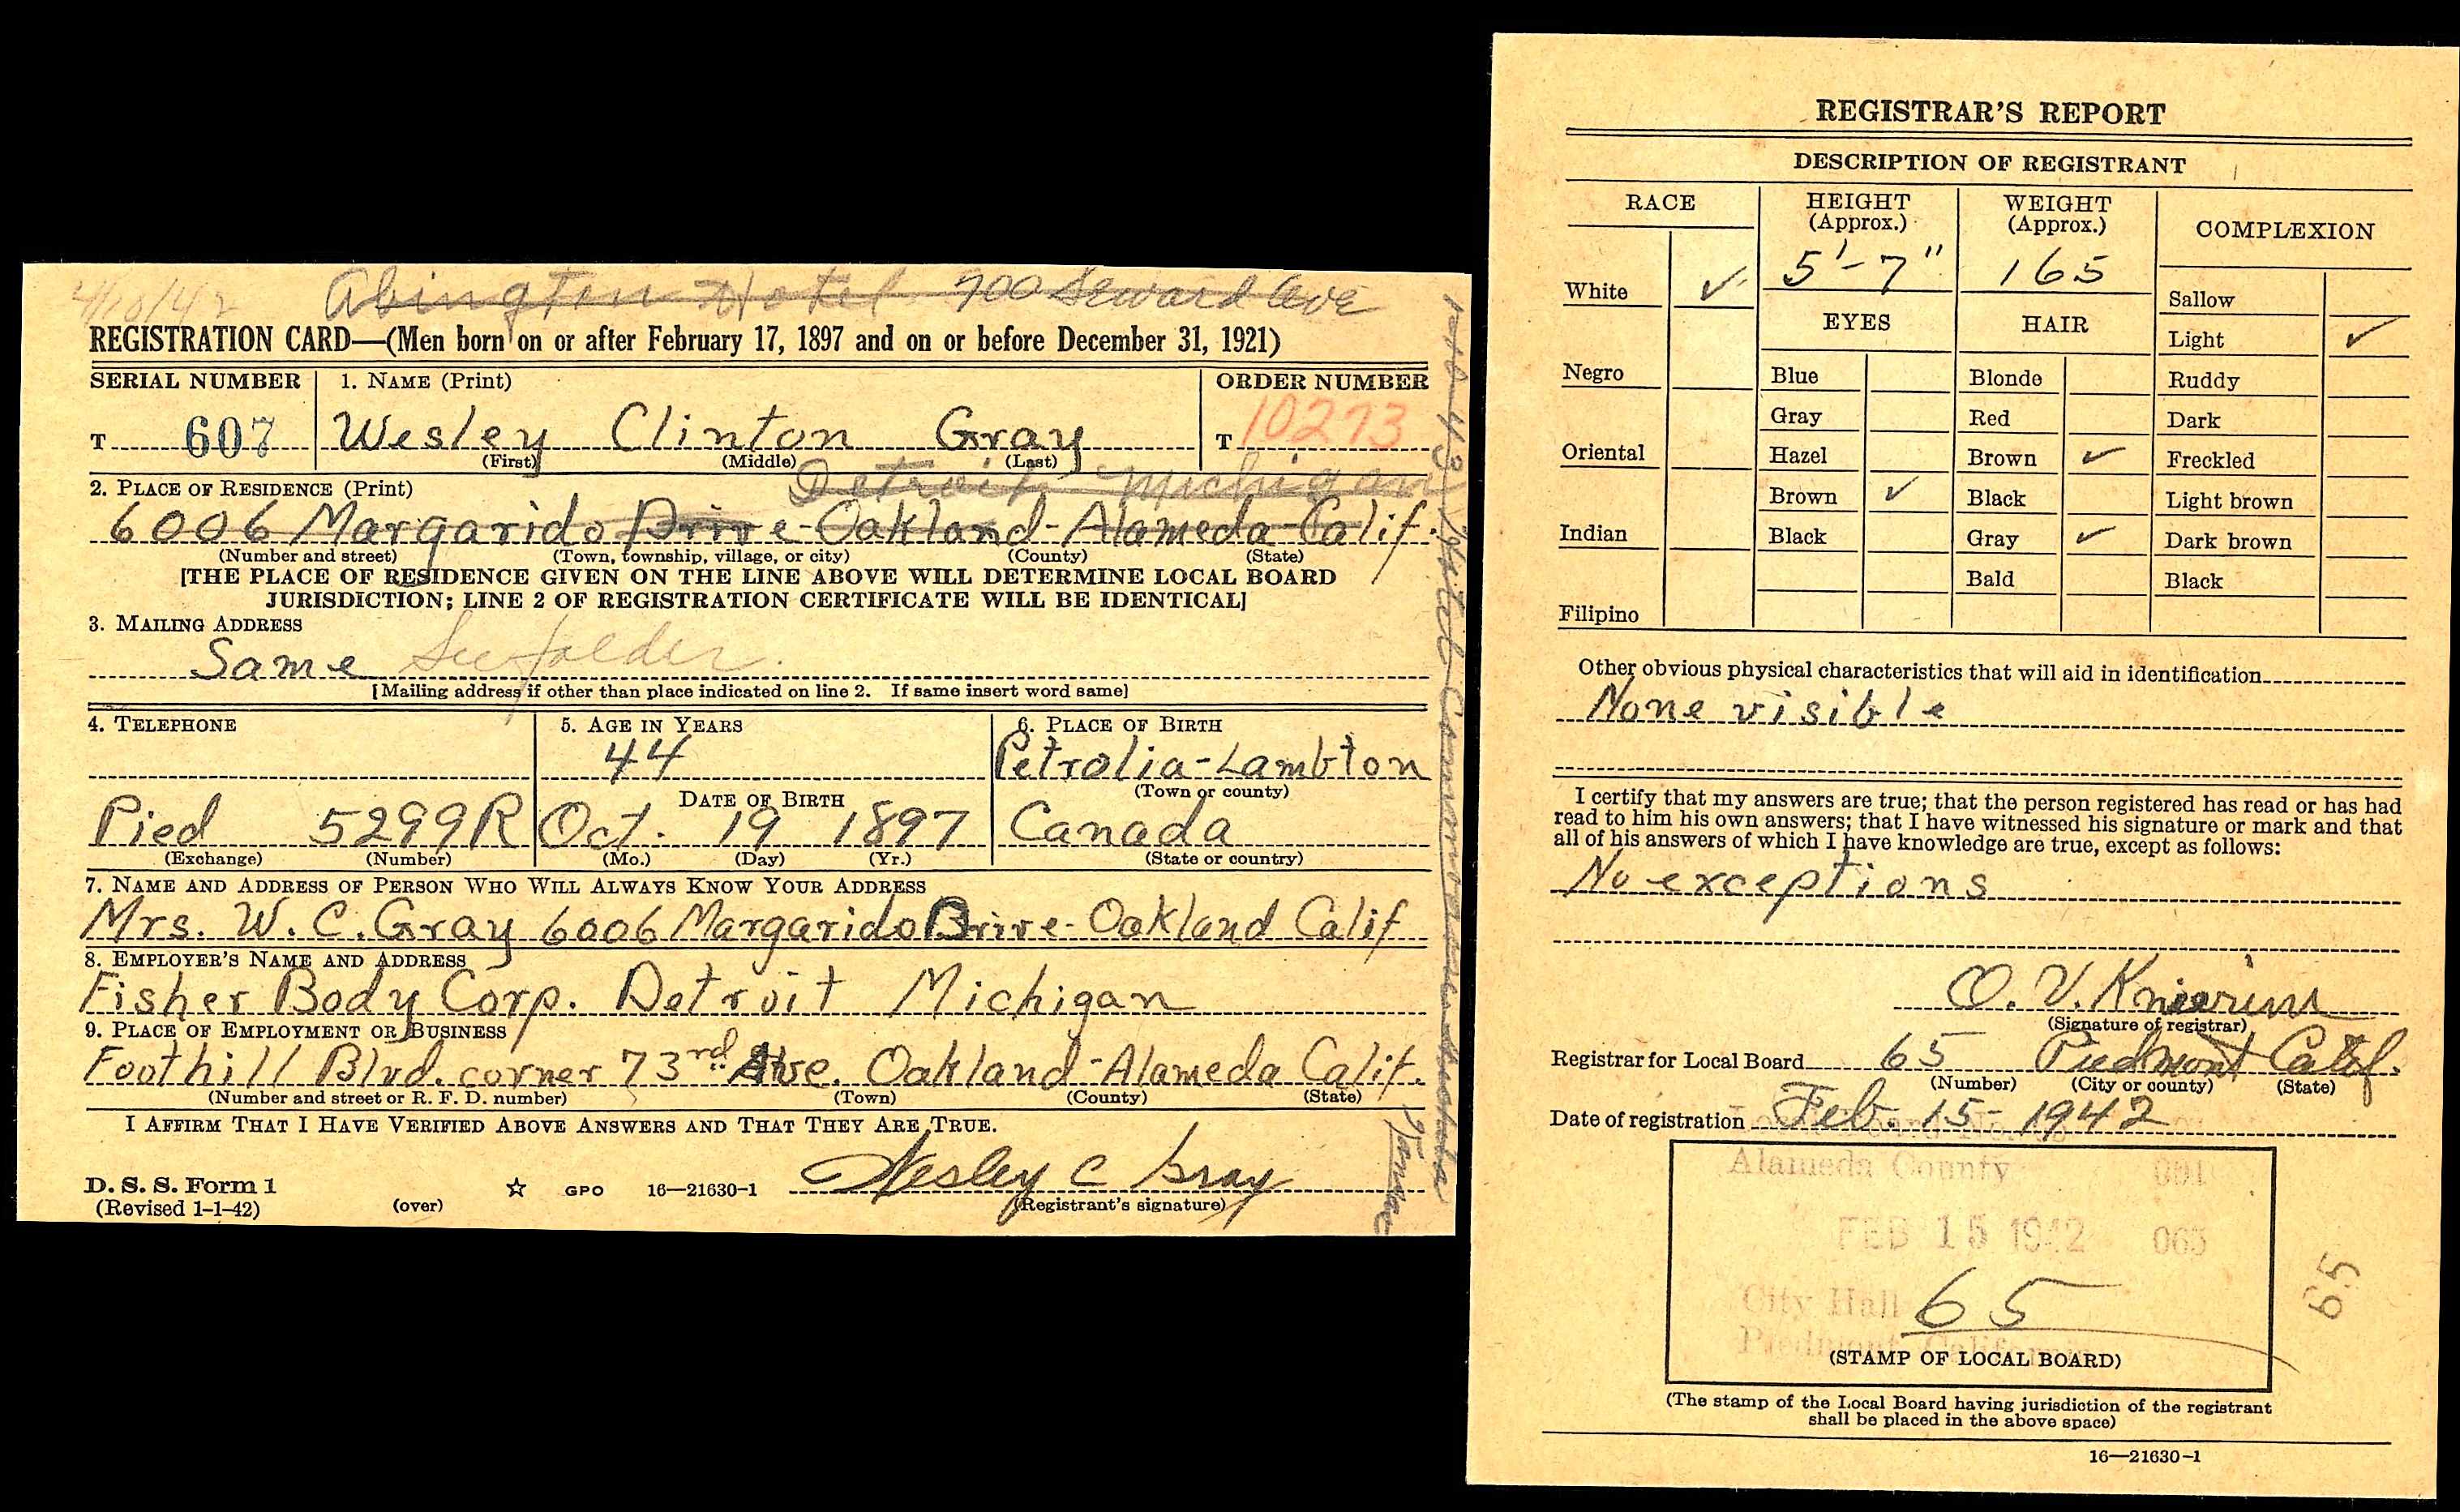 4/10/42 Abington Hotel 700 Seward Ave
REGISTRATION CARD—(Men born on or after February 17, 1897 and on or before December 31, 1921)
SERIAL NUMBER
1. NAME (Print)
ORDER NUMBER
T 607
Wesley Clinton Gray
T 10273
(First) (Middle) (Last)
Detroit Michigan
2. PLACE OF RESIDENCE (Print)
6006 Margarido Drive-Oakland-Alameda-Calif.
(Number and street) (Town, township, village, or city) (County) (State)
[THE PLACE OF RESIDENCE GIVEN ON THE LINE ABOVE WILL DETERMINE LOCAL BOARD
JURISDICTION; LINE 2 OF REGISTRATION CERTIFICATE WILL BE IDENTICAL]
3. MAILING ADDRESS
Same See folder.
[Mailing address if other than place indicated on line 2. If same insert word same]
4. TELEPHONE
5. AGE IN YEARS
6. PLACE OF BIRTH
44
Petrolia-Lambton
DATE OF BIRTH
(Town or county)
Pied 5299R
Oct. 19 1897
Canada
(Exchange) (Number)
(Mo.) (Day) (Yr.)
(State or country)
7. NAME AND ADDRESS OF PERSON WHO WILL ALWAYS KNOW YOUR ADDRESS
Mrs. W. C. Gray 6006 Margarido Drive-Oakland Calif
8. EMPLOYER'S NAME AND ADDRESS
Fisher Body Corp. Detroit Michigan
9. PLACE OF EMPLOYMENT OR BUSINESS
Foothill Blvd. corner 73rd Ave. Oakland-Alameda Calif.
(Number and street or R. F. D. number) (Town) (County) (State)
I AFFIRM THAT I HAVE VERIFIED ABOVE ANSWERS AND THAT THEY ARE TRUE.
Wesley C Gray
D. S. S. Form 1
(Revised 1-1-42)
(over)
GPO 16—21630-1
(Registrant's signature)
Hotel Commodore
REGISTRAR'S REPORT
DESCRIPTION OF REGISTRANT
RACE
HEIGHT
(Approx.)
WEIGHT
(Approx.)
COMPLEXION
5'-7"
165
White ✓
Sallow
EYES
HAIR
Light ✓
Negro
Blue
Blonde
Ruddy
Gray
Red
Dark
Oriental
Hazel
Brown ✓
Freckled
Brown ✓
Black
Light brown
Indian
Black
Gray ✓
Dark brown
Bald
Black
Filipino
Other obvious physical characteristics that will aid in identification
None visible
I certify that my answers are true; that the person registered has read or has had
read to him his own answers; that I have witnessed his signature or mark and that
all of his answers of which I have knowledge are true, except as follows:
No exceptions
O. V.
(Signature of registrar)
Registrar for Local Board 65 Piedmont Calif.
(Number) (City or county) (State)
Date of registration Feb. 15-1942
Alameda County 001
FEB 15 1942 065
65
City Hall
Piedmont California
65
(STAMP OF LOCAL BOARD)
(The stamp of the Local Board having jurisdiction of the registrant
shall be placed in the above space)
16—21630-1